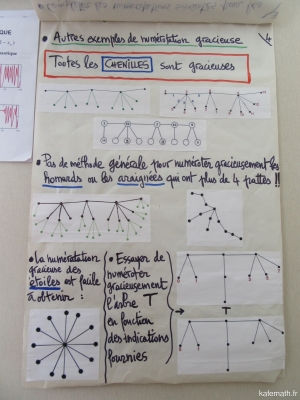 • Autres exemples de numérotation gracieuse
Toutes les CHENILLES sont gracieuses
• Pas de méthode générale pour numéroter gracieusement les
homards ou les araignées qui ont plus de 4 pattes !!
• La numérotation
gracieuse des
étoiles est facile
à obtenir :
• Essayer de
numéroter
gracieusement
l'arbre T
en fonction
des indications
fournies
T
kafemath.fr